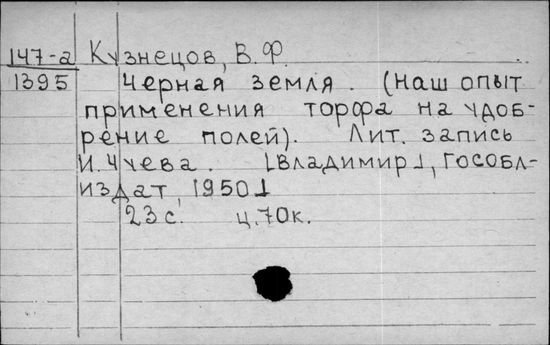 147-а Кузнецов, В.Ф.
1395 Черная земля. (Наш опыт
применения торфа на удоб-
рение полей). Лит. запись
И. Чуева. [Владимир], Гособл-
издат, 1950]
23 с. ц. 70к.